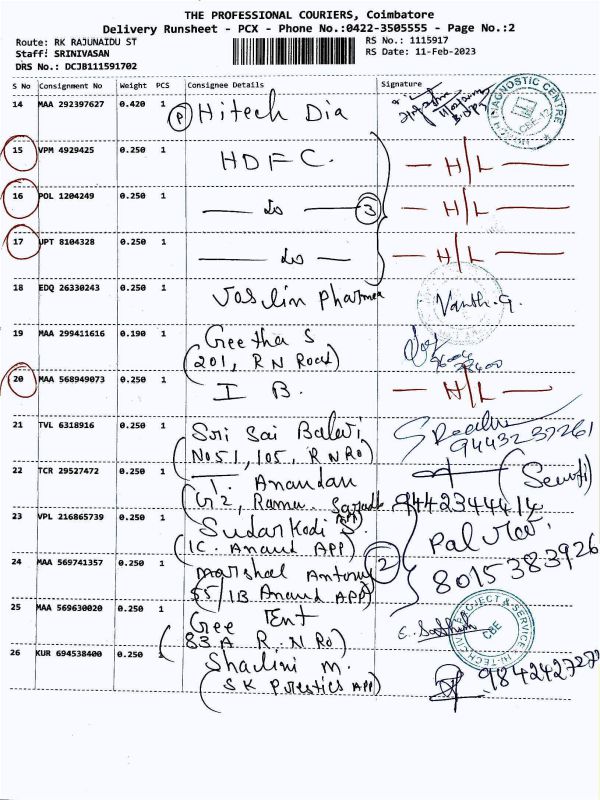 THE PROFESSIONAL COURIERS, Coimbatore
Delivery Runsheet - PCX - Phone No.:0422-3505555 - Page No.:2
Route: RK RAJUNAIDU ST RS No.: 1115917
Staff: SRINIVASAN RS Date: 11-Feb-2023
DRS No.: DCJB111591702
S No Consignment No Weight PCS Consignee Details Signature
14 MAA 292397627 0.420 1 (P) Hitech Dia
15 VPM 4929425 0.250 1 HDFC. H/L
16 POL 1204249 0.250 1 — do — 3 H/L
17 UPT 8104328 0.250 1 — do — H/L
18 EDQ 26330243 0.250 1 Pharma Vanth. G.
19 MAA 299411616 0.190 1 Geetha S
(201, R N Road)
20 MAA 568949073 0.250 1 I B. N/L
21 TVL 6318916 0.250 1 Sri Sai Balaji
(No 51, 105, R N Ro) 9443237261
22 TCR 29527472 0.250 1 T. Anandan
G2, Ramu 9442344414
23 VPL 216865739 0.250 1 Sudarkodi
(1C. Anand APP)
24 MAA 569741357 0.250 1 Marshal Antony 2 8015383926
(55/1B Anand APP)
25 MAA 569630020 0.250 1 Gee Ent
(83 A R. N Ro)
26 KUR 694538400 0.250 1 Shalini M.
(SK APP)